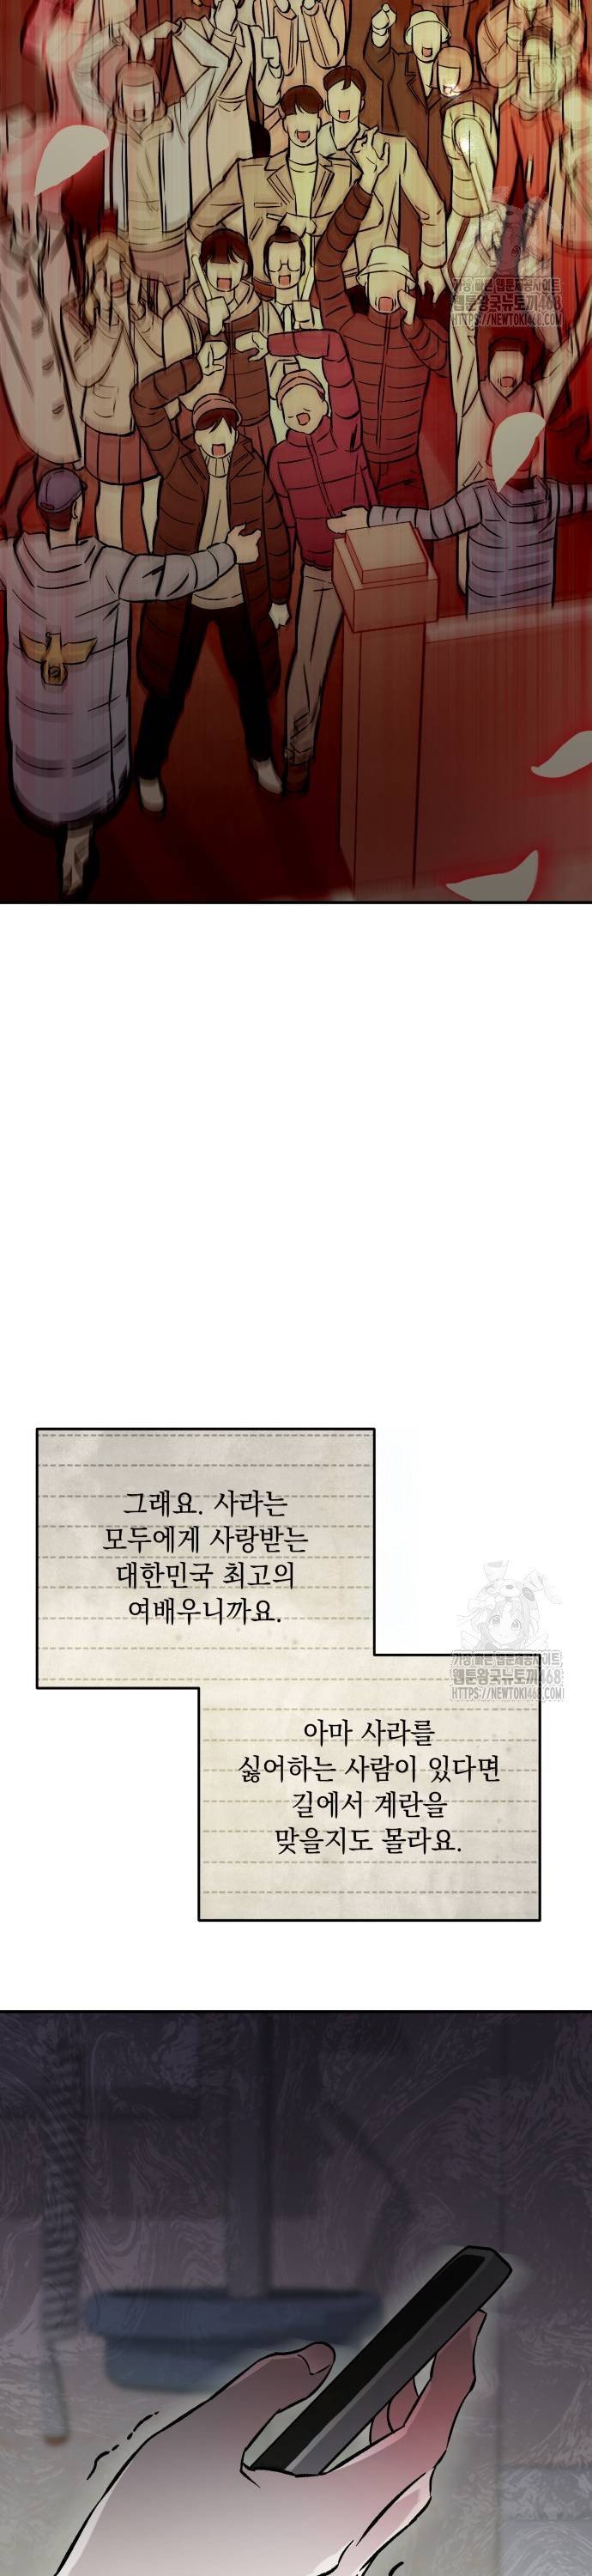 가장 빠른 웹툰제공사이트
웹툰왕국뉴토끼468
HTTPS://NEWTOKI468.COM
그래요. 사라는
모두에게 사랑받는
대한민국 최고의
여배우니까요.
가장 빠른 웹툰제공사이트
웹툰왕국뉴토끼468
HTTPS://NEWTOKI468.COM
아마 사라를
싫어하는 사람이 있다면
길에서 계란을
맞을지도 몰라요.